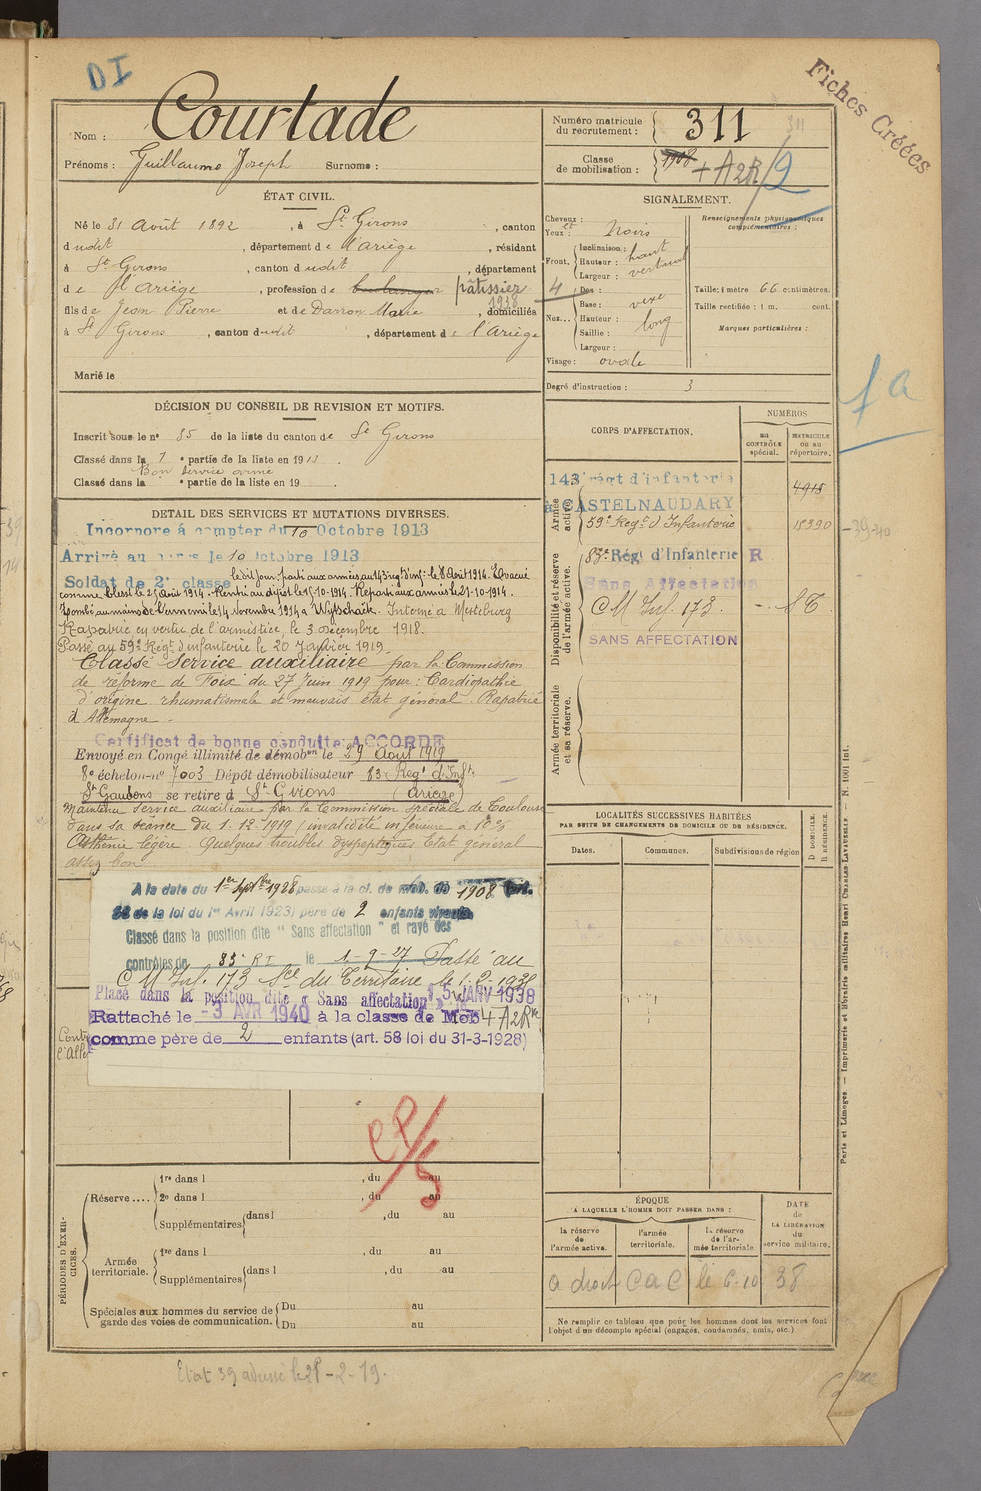 DI
Fiches Créées
Nom : Courtade
Prénoms : Guillaume Joseph Surnoms :
Numéro matricule du recrutement : 311 311
Classe de mobilisation : 1908 + A2R/2
ÉTAT CIVIL.
Né le 31 Août 1892, à St Girons, canton
dudit, département de l'Ariège, résidant
à St Girons, canton dudit, département
de l'Ariège, profession de boulanger pâtissier
1938
fils de Jean Pierre et de Darron Marie, domiciliés
à St Girons, canton dudit, département de l'Ariège
Marié le
SIGNALEMENT.
Cheveux :
et
Yeux : Noirs
Front. Inclinaison : haut
Hauteur : vertical
Largeur :
4
Nez... Dos :
Base : vexe
Hauteur : long
Saillie :
Largeur :
Visage : ovale
Renseignements physionomiques complémentaires :
Taille : 1 mètre 66 centimètres.
Taille rectifiée : 1 m. cent.
Marques particulières :
Degré d'instruction : 3
1a
DÉCISION DU CONSEIL DE REVISION ET MOTIFS.
Inscrit sous le n° 85 de la liste du canton de St Girons
Classé dans la 1e partie de la liste en 1913.
Bon service armé
Classé dans la e partie de la liste en 19
DÉTAIL DES SERVICES ET MUTATIONS DIVERSES.
Incorporé à compter du 10 Octobre 1913
Arrivé au corps le 10 Octobre 1913
Soldat de 2e classe le dit jour. parti aux armées au 143 rég. d'inf. le 8 Août 1914. Evacué
comme blessé le 25 Août 1914. Rentré au dépôt le 15-10-1914. Reparti aux armées le 21-10-1914.
Tombé aux mains de l'ennemi le 14 Novembre 1914 à Wytschaete. Interné à Mersburg
Rapatrié en vertu de l'armistice, le 3 décembre 1918.
Passé au 59e Régt d'infanterie le 20 Janvier 1919.
Classé Service auxiliaire par la Commission
de réforme de Foix du 27 Juin 1919 pour : Cardiopathie
d'origine rhumatismale et mauvais état général. Rapatrié
d'Allemagne -
Certificat de bonne conduite ACCORDÉ
Envoyé en Congé illimité de démobon le 29 Août 1919
8e échelon n° 7003 Dépôt démobilisateur 83e Regt d'Inft.
St Gaudens se retire à St Girons (Ariège)
Maintenu Service auxiliaire par la Commission spéciale de Toulouse
dans sa séance du 1-12-1919 (invalidité inférieure à 10 %
Asthénie légère. Quelques troubles dyspeptiques Etat général
assez bon
A la date du 1er Septbre 1928 passé à la cl. de mob. de 1908 (art.
58 de la loi du 1er Avril 1923) père de 2 enfants vivants
Classé dans la position dite "Sans affectation" et rayé des
contrôles du 83e RI le 1-9-27 Passé au
C M Inf. 173 Sce du Territoire le 1.2.1935
Placé dans la position dite « Sans affectation » le 15 JANV 1938
Rattaché le -3 AVR 1940 à la classe de Mob 4 A2Rve
comme père de 2 enfants (art. 58 loi du 31-3-1928)
CP/5
CORPS D'AFFECTATION.
NUMÉROS
au CONTRÔLE spécial.
MATRICULE ou au répertoire.
Armée active.
143e régt d'infanterie
à CASTELNAUDARY 4915
59e Regt d'Infanterie 15390
39-40
Disponibilité et réserve de l'armée active.
83e Régt d'Infanterie R
Sans Affectation
C M Inf. 173 - SC
SANS AFFECTATION
Armée territoriale et sa réserve.
LOCALITÉS SUCCESSIVES HABITÉES
PAR SUITE DE CHANGEMENTS DE DOMICILE OU DE RÉSIDENCE.
Dates.
Communes.
Subdivisions de région
D DOMICILE.
R RÉSIDENCE.
PÉRIODES D'EXERCICES.
Réserve.... 1re dans l , du au
2e dans l , du au
Supplémentaires dans l , du au
Armée territoriale. 1re dans l , du au
Supplémentaires dans l , du au
Spéciales aux hommes du service de garde des voies de communication. Du au
Du au
ÉPOQUE
À LAQUELLE L'HOMME DOIT PASSER DANS :
la réserve de l'armée active.
l'armée territoriale.
la réserve de l'armée territoriale.
DATE de LA LIBÉRATION du service militaire.
a droit C a C le 6-10 38
Ne remplir ce tableau que pour les hommes dont les services font l'objet d'un décompte spécial (engagés, condamnés, omis, etc.)
Paris et Limoges. — Imprimerie et librairie militaires Henri CHARLES-LAVAUZELLE. — N. 1001 int.
Etat 39 adressé le 28-2-19.